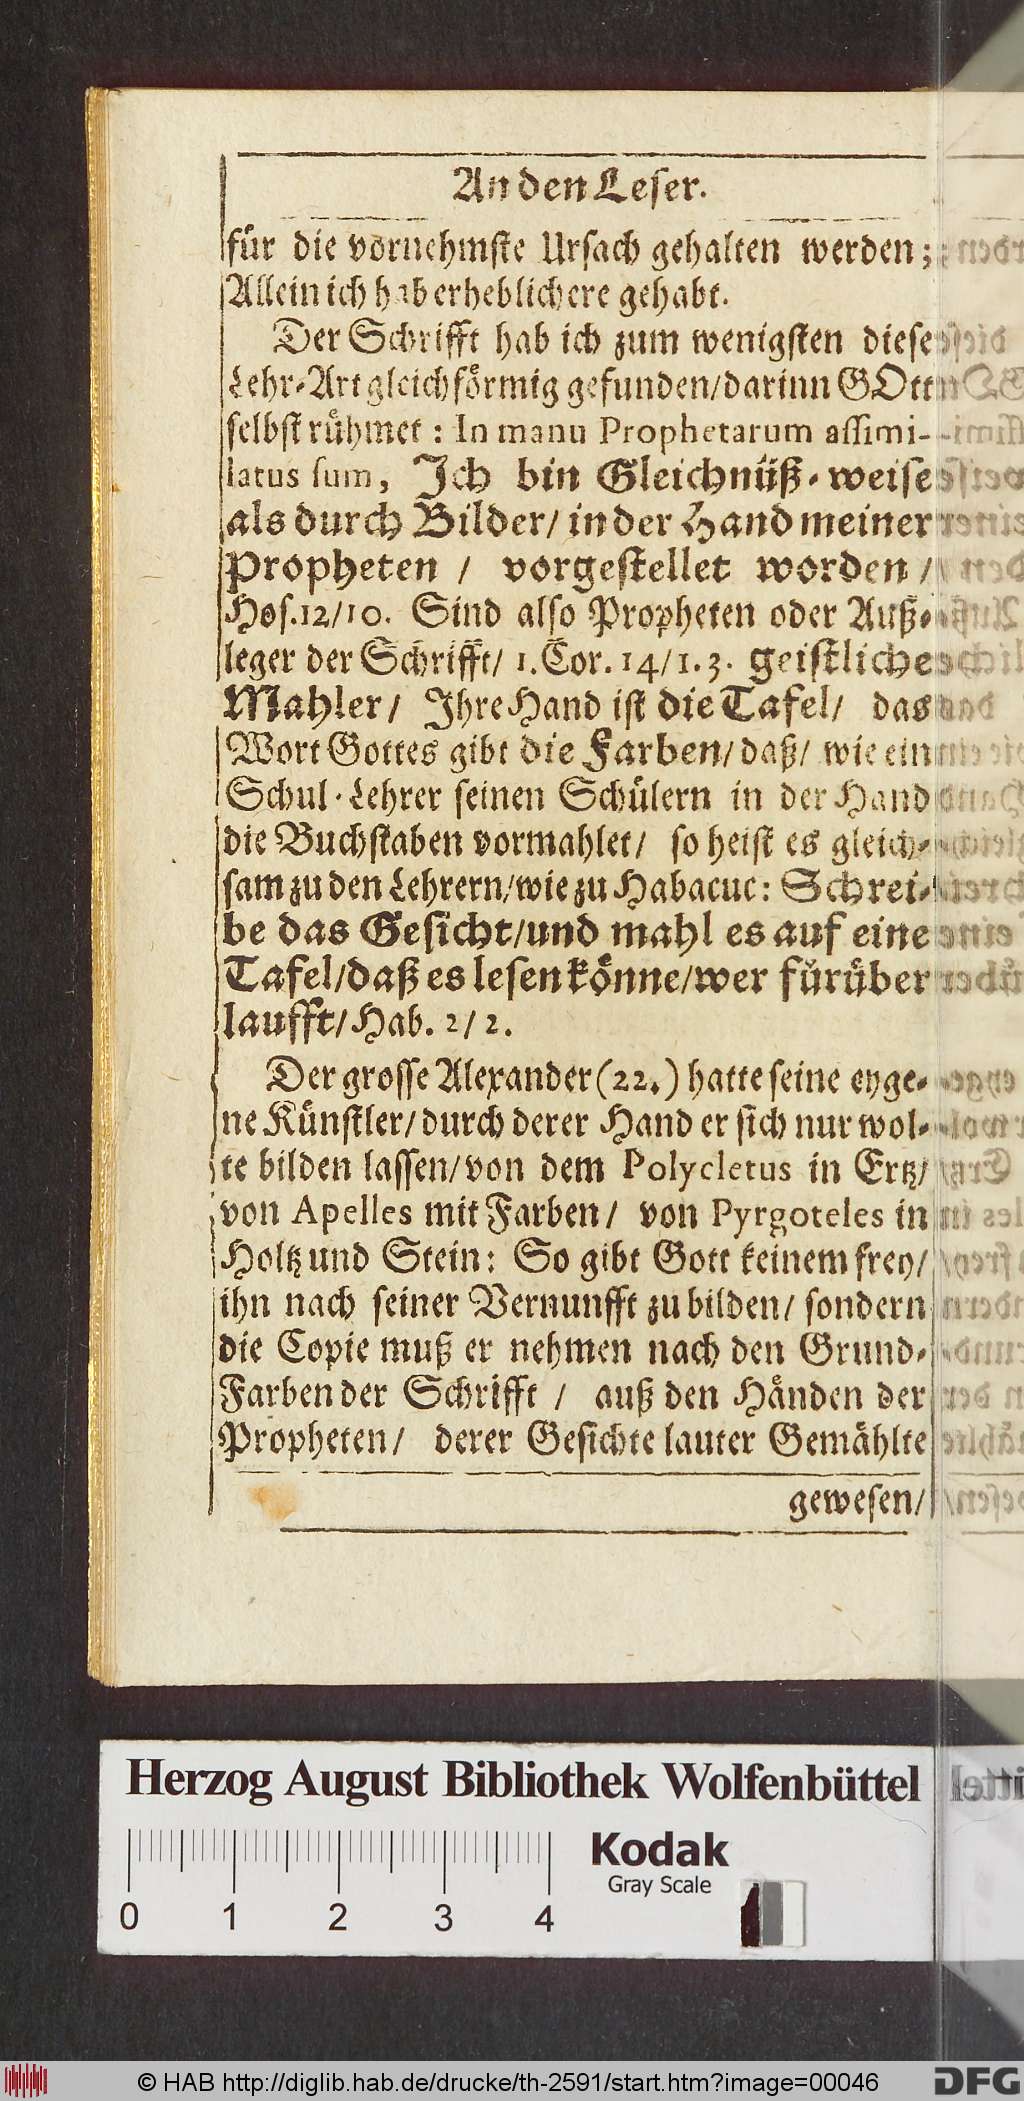 An den Leser.
für die vornehmste Ursach gehalten werden;
Allein ich hab erheblichere gehabt.
Der Schrifft hab ich zum wenigsten diese
Lehr-Art gleichförmig gefunden/darinn GOtt
selbst rühmet : In manu Prophetarum assimi-
latus sum, Ich bin Gleichnüß-weise
als durch Bilder/ in der Hand meiner
Propheten / vorgestellet worden /
Hos.12/10. Sind also Propheten oder Auß-
leger der Schrifft/ 1. Cor. 14/1.3. geistliche
Mahler/ Ihre Hand ist die Tafel/ das
Wort Gottes gibt die Farben/ daß/ wie ein
Schul-Lehrer seinen Schülern in der Hand
die Buchstaben vormahlet/ so heist es gleich-
sam zu den Lehrern/wie zu Habacuc: Schrei-
be das Gesicht/und mahl es auf eine
Tafel/daß es lesen könne/wer fürüber
laufft/ Hab. 2/2.
Der grosse Alexander (22.) hatte seine eyge-
ne Künstler/durch derer Hand er sich nur wol-
te bilden lassen/von dem Polycletus in Ertz/
von Apelles mit Farben/ von Pyrgoteles in
Holtz und Stein: So gibt Gott keinem frey/
ihn nach seiner Vernunfft zu bilden/ sondern
die Copie muß er nehmen nach den Grund-
Farben der Schrifft / auß den Händen der
Propheten/ derer Gesichte lauter Gemählte
gewesen/
Herzog August Bibliothek Wolfenbüttel
0 1 2 3 4
Kodak
Gray Scale
© HAB http://diglib.hab.de/drucke/th-2591/start.htm?image=00046
DFG